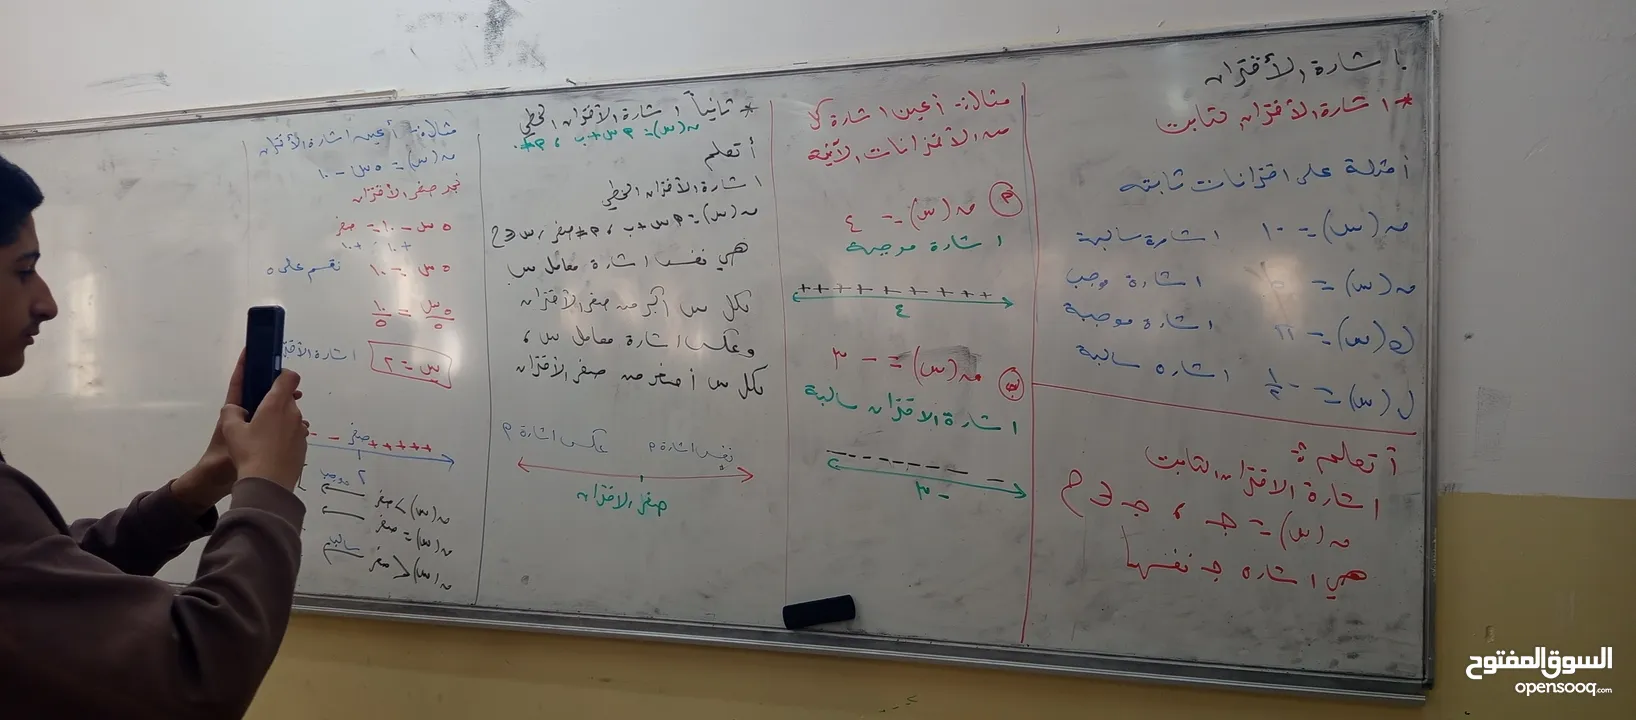 اشارة الأقتران
* اشارة الأقتران الثابت
أمثلة على اقترانات ثابته
اشارة سالبة
اشارة موجب
اشارة موجبة
اشاره سالبة
أتعلم :
اشارة الاقتران الثابت
ق(س) = جـ ، جـ ∈ ح
هي اشاره جـ نفسها
مثال:- أعين اشارة كل
من الأقترانات الآتية
ق(س) = ٤
اشارة موجبة
+ + + + + + + + +
٤
ب ق(س) = - ٣
اشارة الاقتران سالبة
- ٣
* ثانياً اشارة الأقتران الخطي
أتعلم
اشارة الأقتران الخطي
هي نفس اشارة معامل س
لكل س أكبر من صفر الأقتران
وعكس اشارة معامل س ،
لكل س أصغر من صفر الأقتران
نفس اشارة م عكس اشارة م
صفر الاقتران
مثال:- أعين اشارة الأقتران
ق(س) = ٥س - ١٠
نجد صفر الأقتران
٥س - ١٠ = صفر
+١٠ +١٠
٥س = ١٠ نقسم على ٥
٥س/٥ = ١٠/٥
س = ٢ اشارة
- - صفر + + + + +
٢
ق(س) > صفر موجب
ق(س) = صفر
ق(س) < صفر سالب
السوق المفتوح
opensooq.com